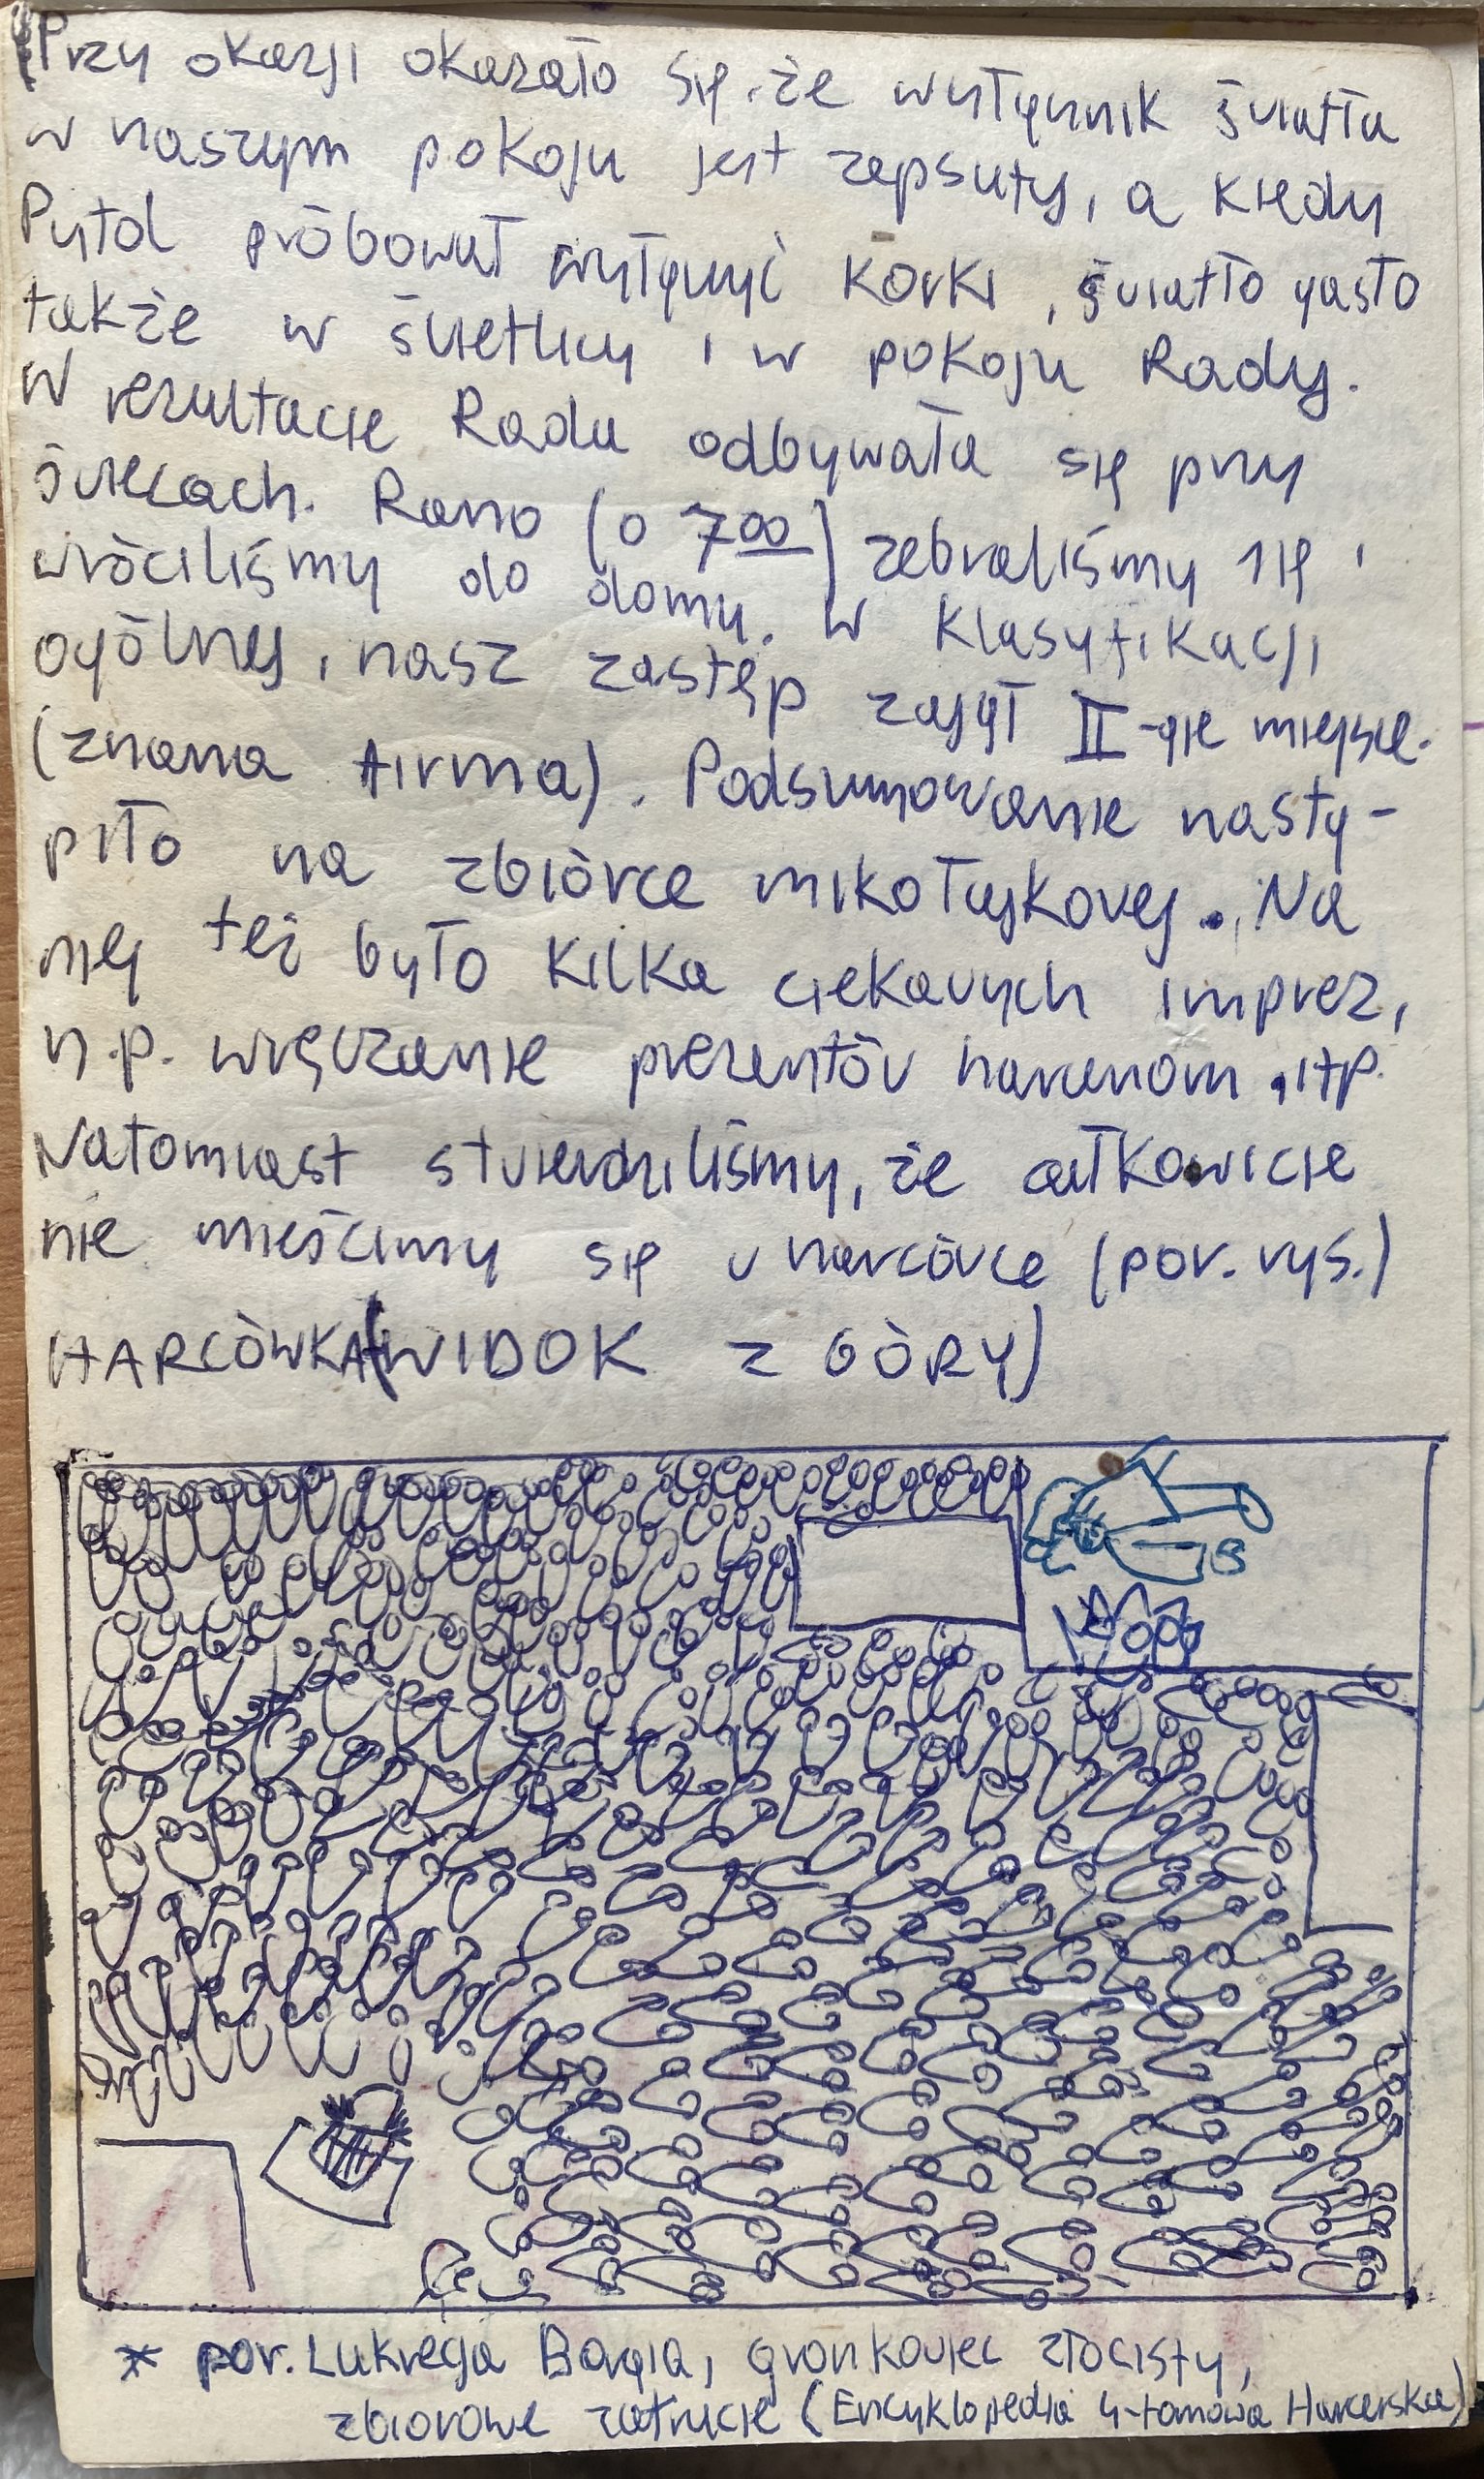 Przy okazji okazało się, że wyłącznik światła
w naszym pokoju jest zepsuty, a kiedy
Pytol próbował wyłączyć korki, światło gasło
także w świetlicy i w pokoju Rady.
W rezultacie Rada odbywała się przy
świecach. Rano (o 7 00) zebraliśmy się i
wróciliśmy do domu. W klasyfikacji
ogólnej, nasz zastęp zajął II-gie miejsce.
(znana firma). Podsumowanie nastą-
piło na zbiórce mikołajkowej. Na
niej też było kilka ciekawych imprez,
n.p. wręczanie prezentów harcerzom, itp.
Natomiast stwierdziliśmy, że całkowicie
nie mieścimy się w harcówce (por. rys.)
HARCÓWKA (WIDOK Z GÓRY)
* por. Lukrecja Borgia, gronkowiec złocisty,
zbiorowe zatrucie (Encyklopedia 4-tomowa Harcerska)